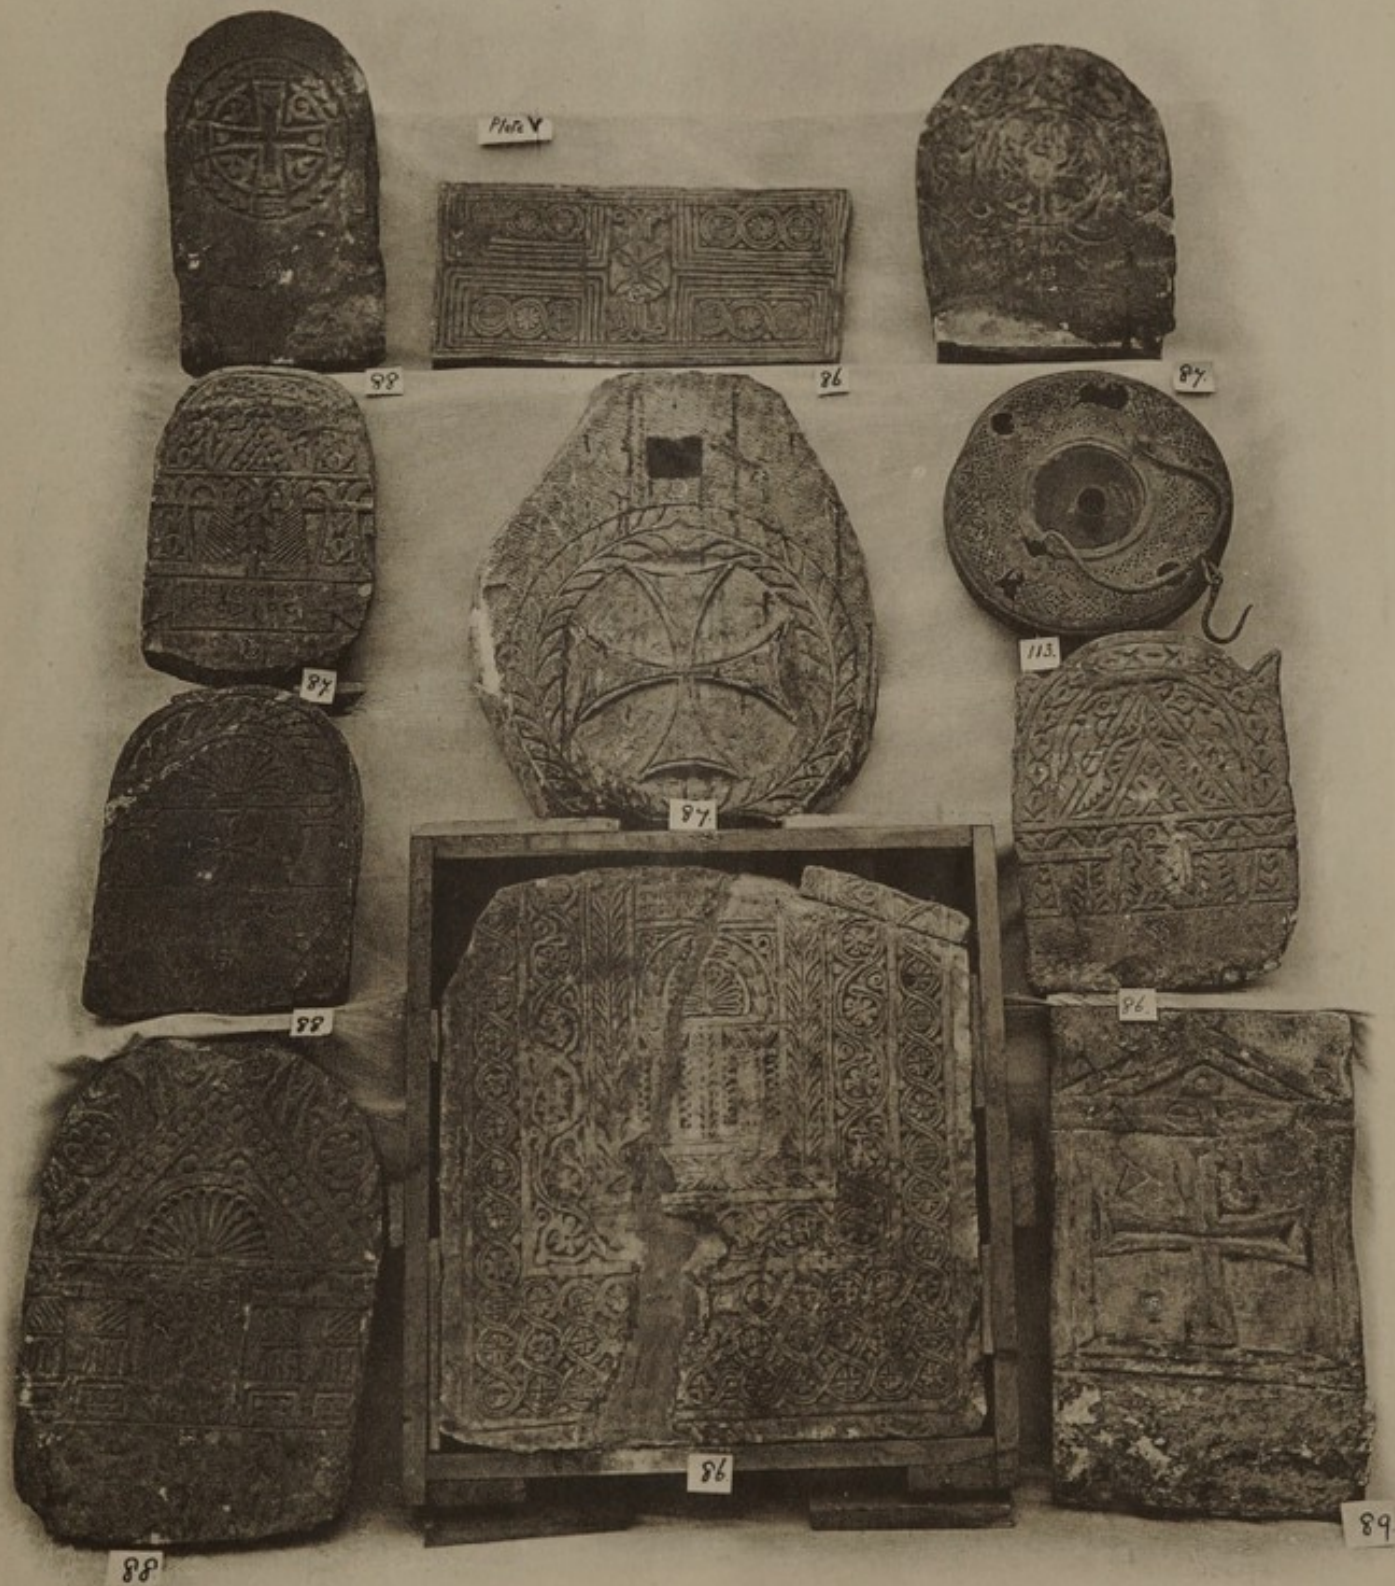 Plate V
88
86
87.
87
113.
87.
88
86.
86
89.
88